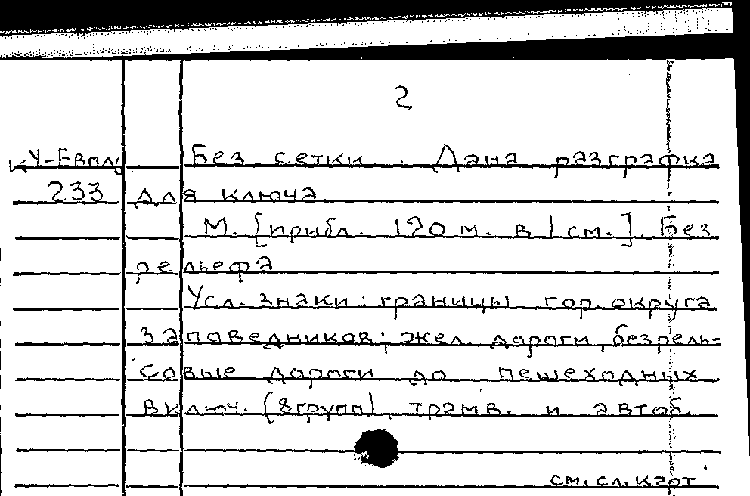 2
КУ-Евпл Без сетки. Дана разграфка
233 для ключа
М. [прибл. 120 м. в 1 см.]. Без
рельефа
Усл. знаки: границы гор. округа
заповедников; жел. дороги, безрель-
совые дороги до пешеходных
включ. (8 групп), трамв. и автоб.
см. сл. карт.